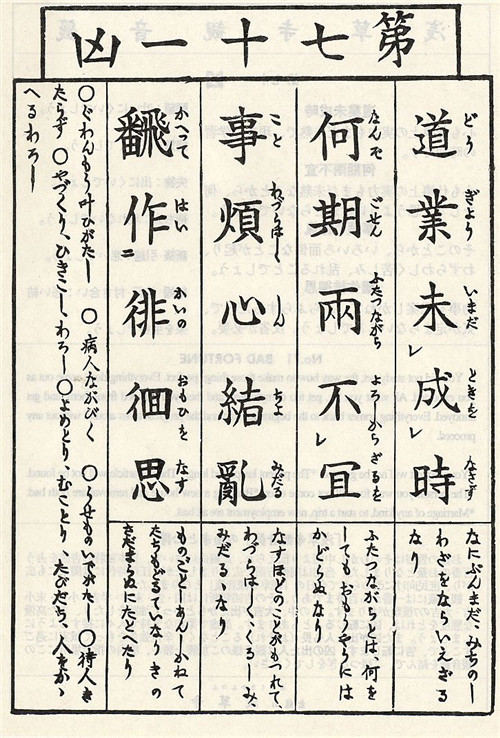 第七十一凶
道業未レ成時
どうぎよういまだときをなさず
なにぶんまだ、みちのし
わざをならいえざる
なり
何期兩不レ宜
なんぞごせんふたつながらよろしからざるを
ふたつながらとは、何を
してもおもうやうには
かどらぬなり
事煩心緒亂
ことわづらはししんちよみだる
なすほどのことがもつれて、
わづらはしくくるしみ、
みだるるなり
翻作二徘徊思
かへつてはいかいのおもひをなす
ものごと かねて
たちもどるていなりきの
さだまらぬにたとへたり
〇ぐわんもう叶ひがたし 〇病人ながびく 〇うせものいでがたし 〇待人き
たらず 〇やづくり、ひきこし、わろし 〇よめとり、むことり、たびだち、人をかゝ
へるわろし